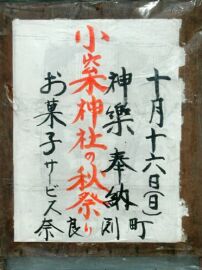 十月十六日(日)
神樂奉納
小神社の秋祭り
お菓子サービス
奈良渕町